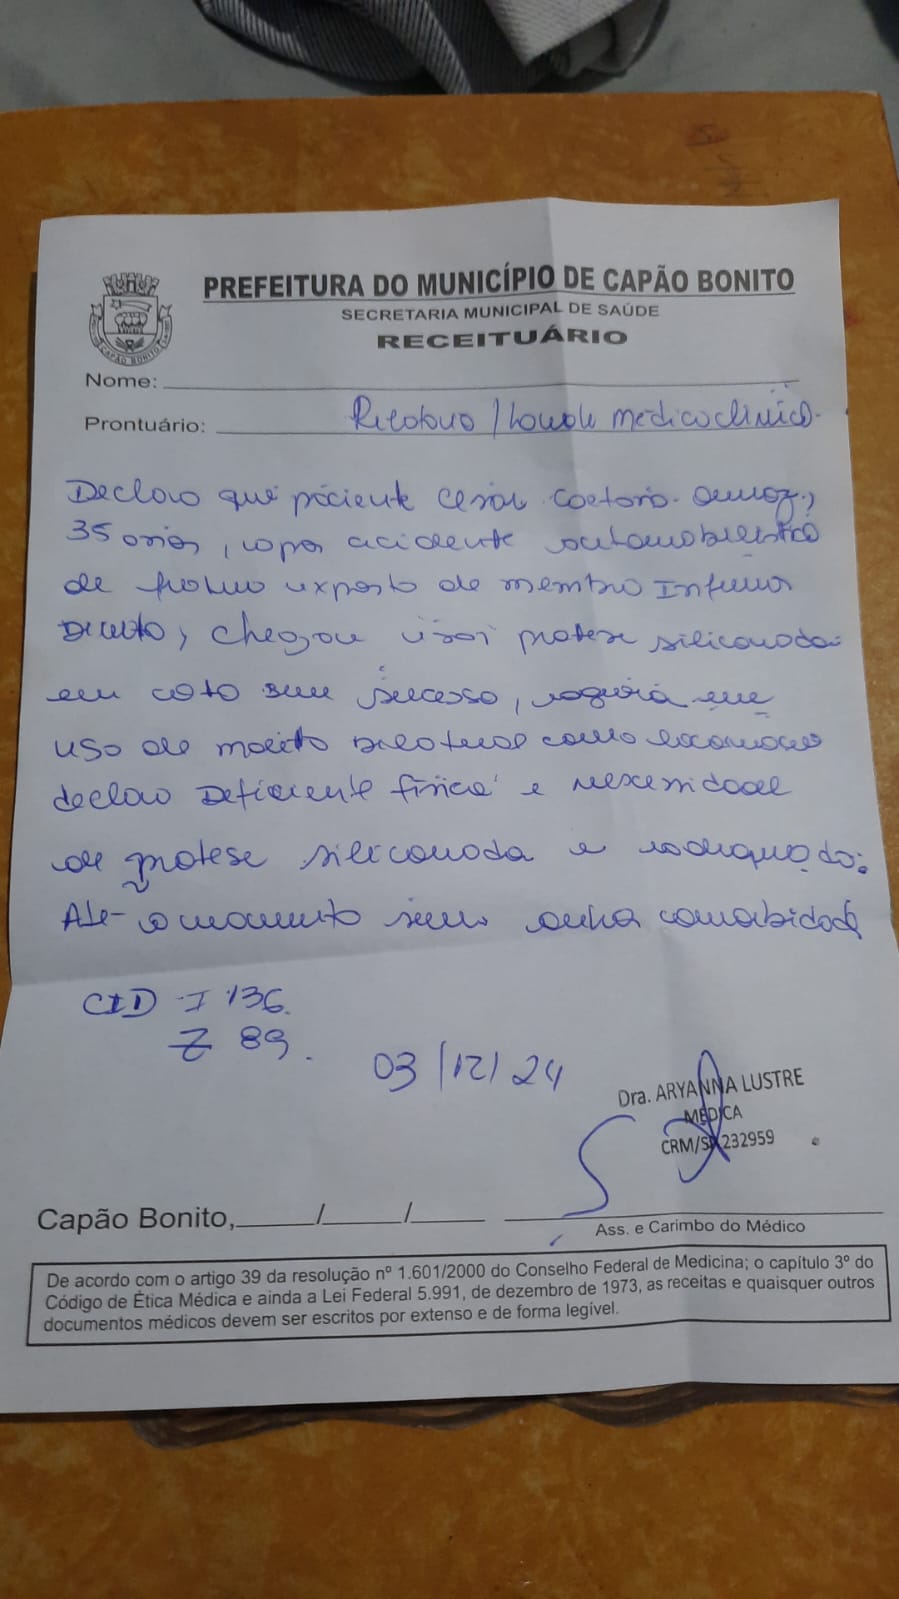 PREFEITURA DO MUNICÍPIO DE CAPÃO BONITO
SECRETARIA MUNICIPAL DE SAÚDE
RECEITUÁRIO
CAPÃO BONITO
Nome:
Prontuário: médico clínico.
Declaro que paciente Cesar Caetano
35 anos, após acidente automobilístico
de exposto de membro Inferior
Direito, chegou usar protese siliconada
em coto sem sucesso, em
uso de bilateral como
declaro Deficiente física e necessidade
de protese siliconada e adequada.
Até o momento sem outra comorbidade
CID I 136.
Z 89.
03/12/24
Dra. ARYANNA LUSTRE
MÉDICA
CRM/SP 232959
Capão Bonito,____/____/____
Ass. e Carimbo do Médico
De acordo com o artigo 39 da resolução nº 1.601/2000 do Conselho Federal de Medicina; o capítulo 3º do
Código de Ética Médica e ainda a Lei Federal 5.991, de dezembro de 1973, as receitas e quaisquer outros
documentos médicos devem ser escritos por extenso e de forma legível.